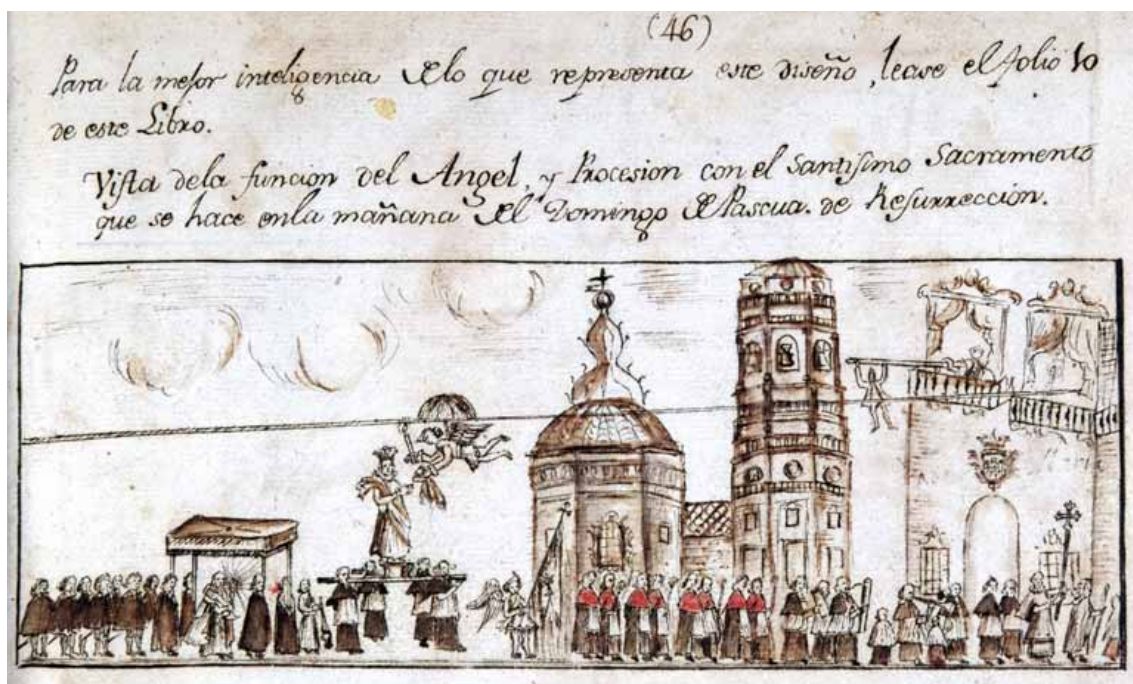 (46)
Para la mejor inteligencia de lo que representa este diseño, lease el folio 10
de este Libro.
Vista dela funcion del Angel, y Procesion con el Santisimo Sacramento
que se hace enla mañana del Domingo de Pascua. de Resurrección.